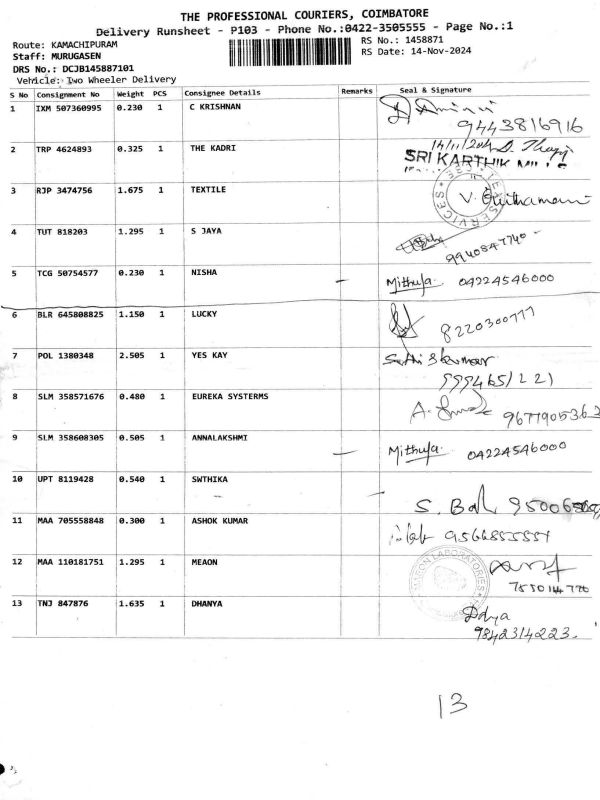 THE PROFESSIONAL COURIERS, COIMBATORE
Delivery Runsheet - P103 - Phone No.:0422-3505555 - Page No.:1
Route: KAMACHIPURAM
RS No.: 1458871
Staff: MURUGASEN
RS Date: 14-Nov-2024
DRS No.: DCJB145887101
Vehicle: Two Wheeler Delivery
S No Consignment No Weight PCS Consignee Details Remarks Seal & Signature
1 IXM 507360995 0.230 1 C KRISHNAN
9443816916
2 TRP 4624893 0.325 1 THE KADRI 14/11/204 D.
SRI KARTHIK
3 RJP 3474756 1.675 1 TEXTILE
SERVICES
V.
4 TUT 818203 1.295 1 S JAYA
9940847740
5 TCG 50754577 0.230 1 NISHA Mithula 04224546000
6 BLR 645808825 1.150 1 LUCKY
8220300777
7 POL 1380348 2.505 1 YES KAY
8 SLM 358571676 0.480 1 EUREKA SYSTERMS A.
9 SLM 358608305 0.505 1 ANNALAKSHMI Mithula 04224546000
10 UPT 8119428 0.540 1 SWTHIKA
S.
11 MAA 705558848 0.300 1 ASHOK KUMAR
12 MAA 110181751 1.295 1 MEAON
LABORATORIES
13 TNJ 847876 1.635 1 DHANYA
Ddya
9842314223.
13